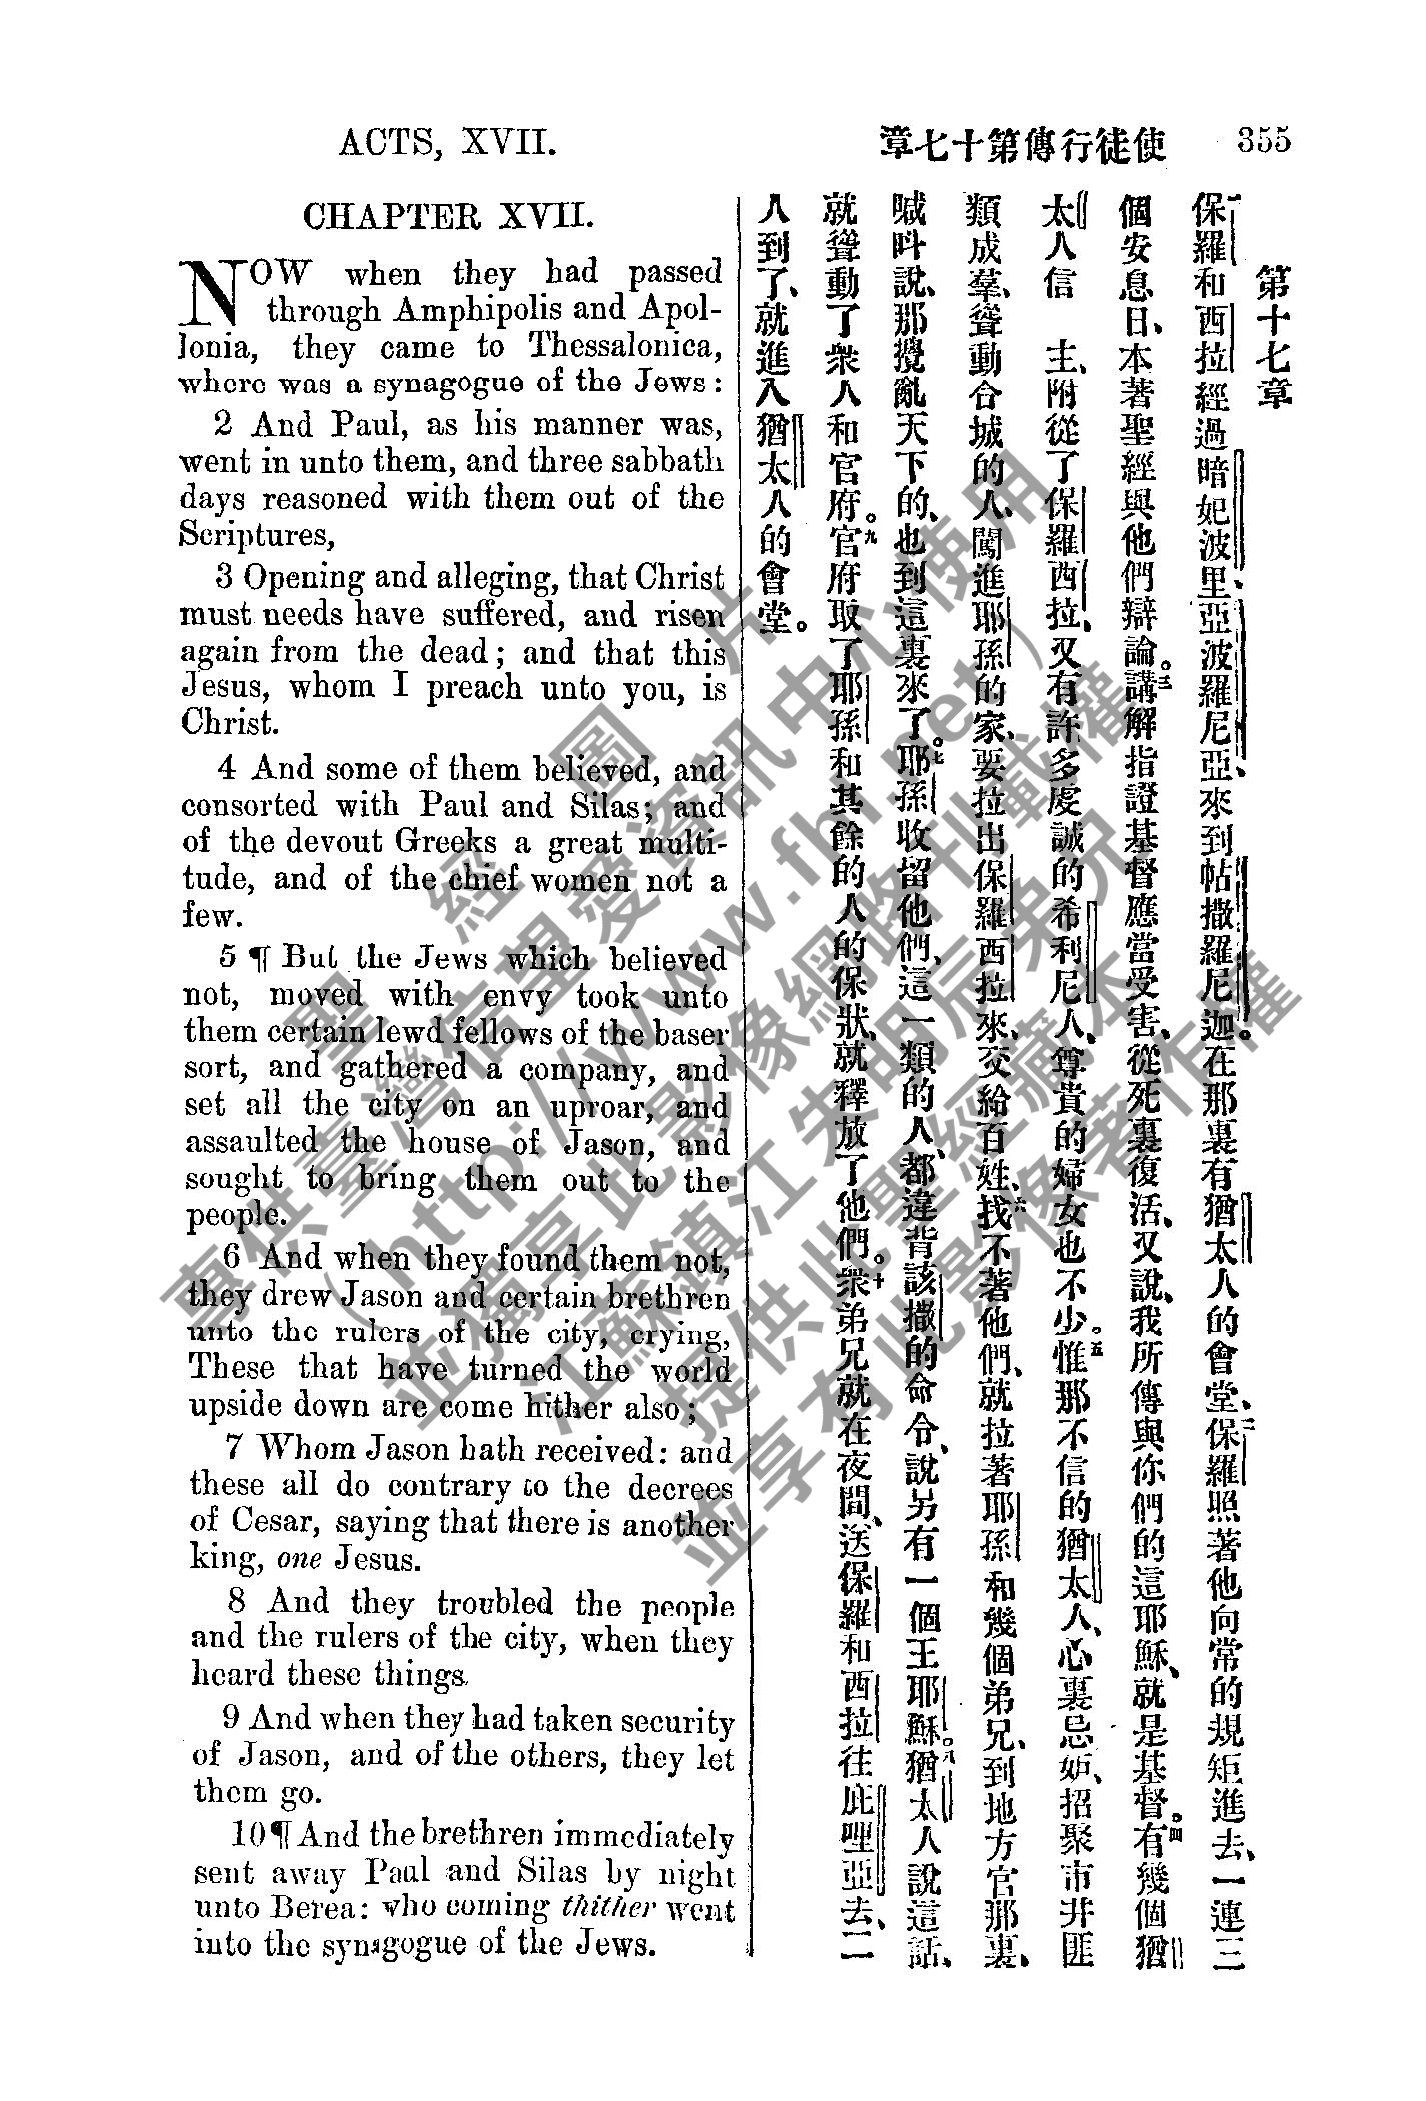 ACTS, XVII.
使徒行傳第十七章
355
CHAPTER XVII.
NOW when they had passed
through Amphipolis and Apol-
lonia, they came to Thessalonica,
where was a synagogue of the Jews:
2 And Paul, as his manner was,
went in unto them, and three sabbath
days reasoned with them out of the
Scriptures,
3 Opening and alleging, that Christ
must needs have suffered, and risen
again from the dead; and that this
Jesus, whom I preach unto you, is
Christ.
4 And some of them believed, and
consorted with Paul and Silas; and
of the devout Greeks a great multi-
tude, and of the chief women not a
few.
5 ¶ But the Jews which believed
not, moved with envy took unto
them certain lewd fellows of the baser
sort, and gathered a company, and
set all the city on an uproar, and
assaulted the house of Jason, and
sought to bring them out to the
people.
6 And when they found them not,
they drew Jason and certain brethren
unto the rulers of the city, crying,
These that have turned the world
upside down are come hither also;
7 Whom Jason hath received: and
these all do contrary to the decrees
of Cesar, saying that there is another
king, one Jesus.
8 And they troubled the people
and the rulers of the city, when they
heard these things.
9 And when they had taken security
of Jason, and of the others, they let
them go.
10 ¶ And the brethren immediately
sent away Paul and Silas by night
unto Berea: who coming thither went
into the synagogue of the Jews.
第十七章
一保羅和西拉經過暗妃波里、亞波羅尼亞、來到帖撒羅尼迦。在那裏有猶太人的會堂、二保羅照著他向常的規矩進去、一連三
個安息日、本著聖經與他們辯論。三講解指證基督應當受害、從死裏復活、又說、我所傳與你們的這耶穌、就是基督。四有幾個猶
太人信 主、附從了保羅西拉、又有許多虔誠的希利尼人、尊貴的婦女也不少。五惟那不信的猶太人、心裏忌妒、招聚市井匪
類成羣、聳動合城的人、闖進耶孫的家、要拉出保羅西拉來、交給百姓、六找不著他們、就拉著耶孫和幾個弟兄、到地方官那裏、
喊呌說、那攪亂天下的、也到這裏來了。七耶孫收留他們、這一類的人、都違背該撒的命令、說另有一個王耶穌。八猶太人說這話、
就聳動了衆人和官府。九官府取了耶孫和其餘的人的保狀、就釋放了他們。十衆弟兄就在夜間、送保羅和西拉往庇哩亞去、二
人到了、就進入猶太人的會堂。
聖經圖片
專供臺灣信望愛資訊中心使用
（http://www.fhl.net）
並獨享此影像網路刊載權
江蘇鎮江朱明辰弟兄
提供此聖經藏本
並享有此影像著作權